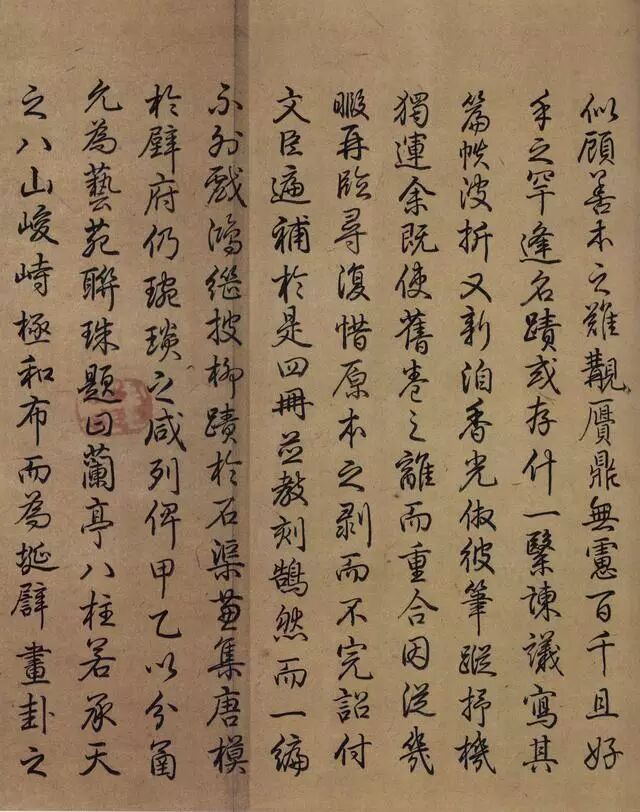 似顧善本之難覯贋鼎無慮百千且好
手之罕逢名蹟或存什一緊諫議寫其
篇帙波折又新洎香光倣彼筆蹤抒機
獨運余既使舊卷之離而重合因从幾
暇再臨尋復惜原本之剥而不完詔付
文臣遍補於是四冊並教刻鵠然而一編
不外戲鴻繼披柳蹟於石渠兼集唐模
於壁府仍琬琰之咸列俾甲乙以分函
允為藝苑聯珠題曰蘭亭八柱若承天
之八山峻峙極和布而為埏譬畫卦之